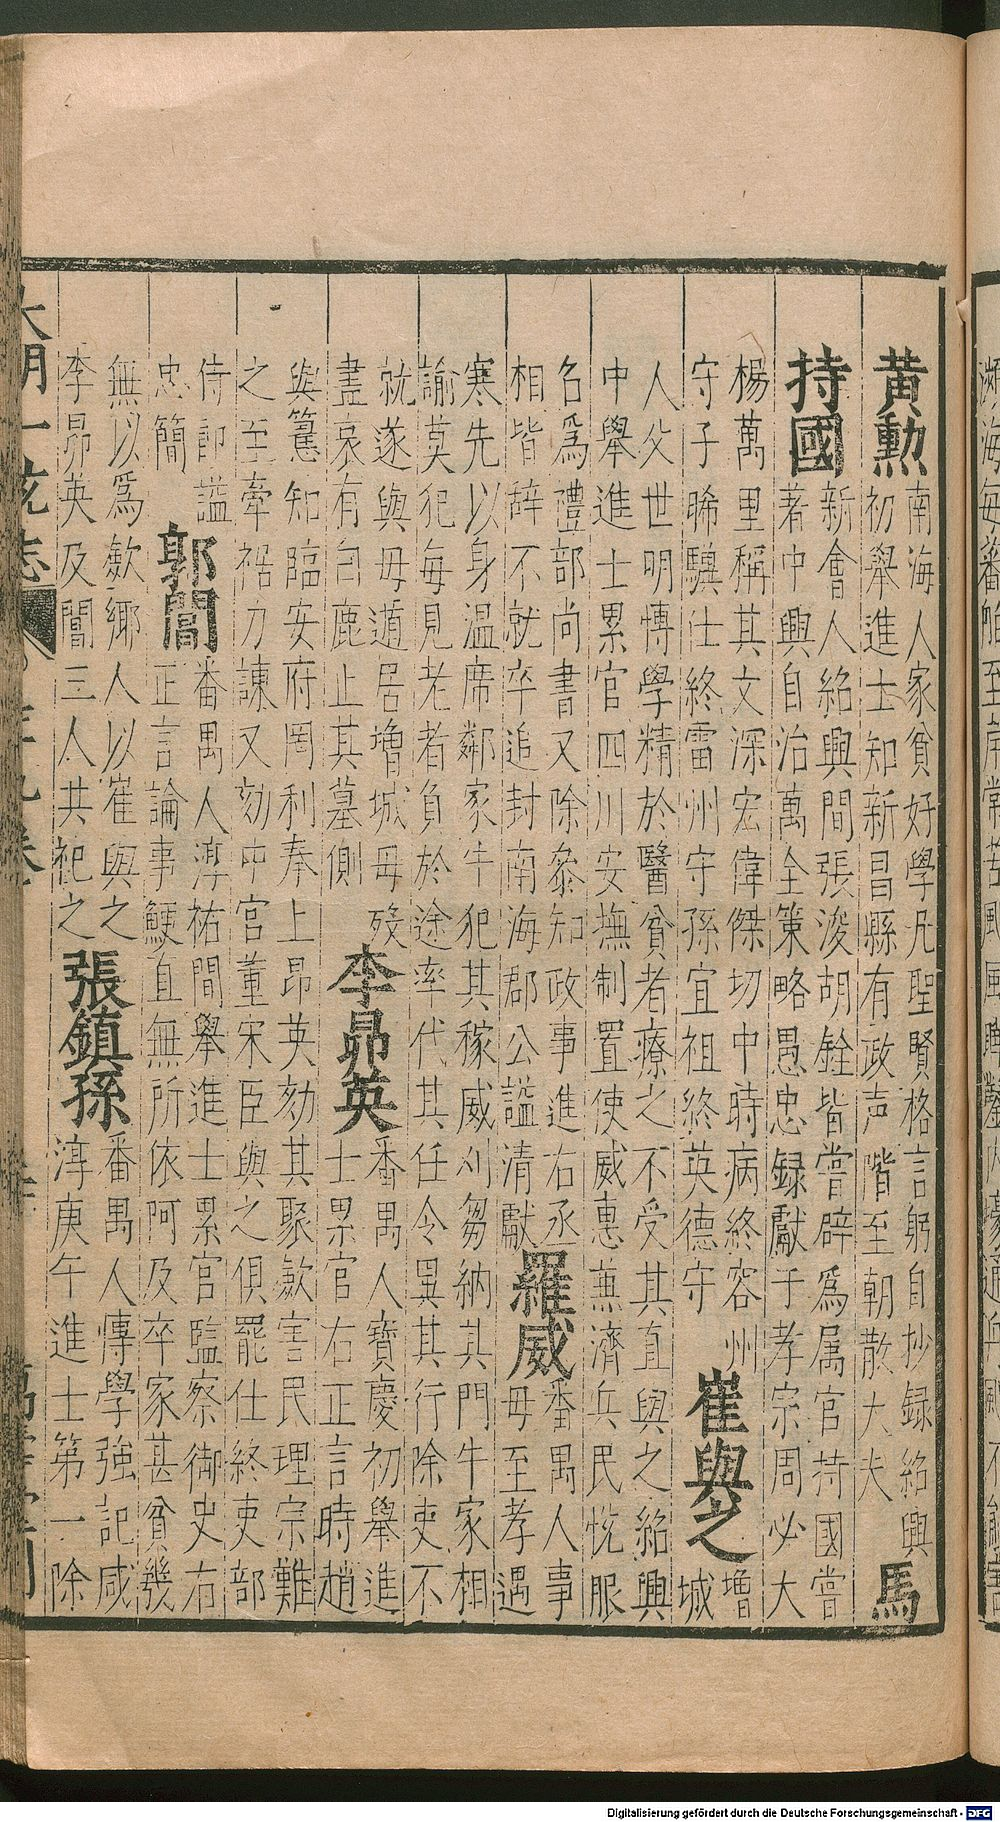 黃勲
南海人家貧好學凡聖賢格言躬自抄録紹興
初舉進士知新昌縣有政声階至朝散大夫
馬
持國
新會人紹興間張浚胡銓皆嘗辟爲属官持國嘗
著中興自治萬全策略愚忠録獻于孝宗周必大
楊萬里稱其文深宏偉傑切中時病終容州
守子晞驥仕終雷州守孫宜祖終英德守
崔與之
增
城
人父世明慱學精於醫貧者療之不受其直與之紹興
中舉進士累官四川安撫制置使威惠兼濟兵民悦服
名爲禮部尚書又除叅知政事進右丞
相皆辞不就卒追封南海郡公謚清獻
羅威
番禺人事
母至孝遇
寒先以身温席鄰家牛犯其稼威刈芻納其門牛家相
諭莫犯每見老者負於途率代其任令異其行除吏不
就遂與母遁居增城母殁
盡哀有白鹿止其墓側
李昴英
番禺人寶慶初舉進
士累官右正言時趙
與𥲅知臨安府罔利奉上昂英劾其聚歛害民理宗難
之至牽裾力諫又劾中宮董宋臣與之俱罷仕終吏部
侍郎謚
忠簡
郭閶
番禺人淳祐間舉進士累官監察御史右
正言論事鯁直無所依阿及卒家甚貧幾
無以爲歛鄉人以崔與之
李昴英及閶三人共祀之
張鎮孫
番禺人慱學強記咸
淳庚午進士第一除
大明一統志
Digitalisierung gefördert durch die Deutsche Forschungsgemeinschaft - DFG